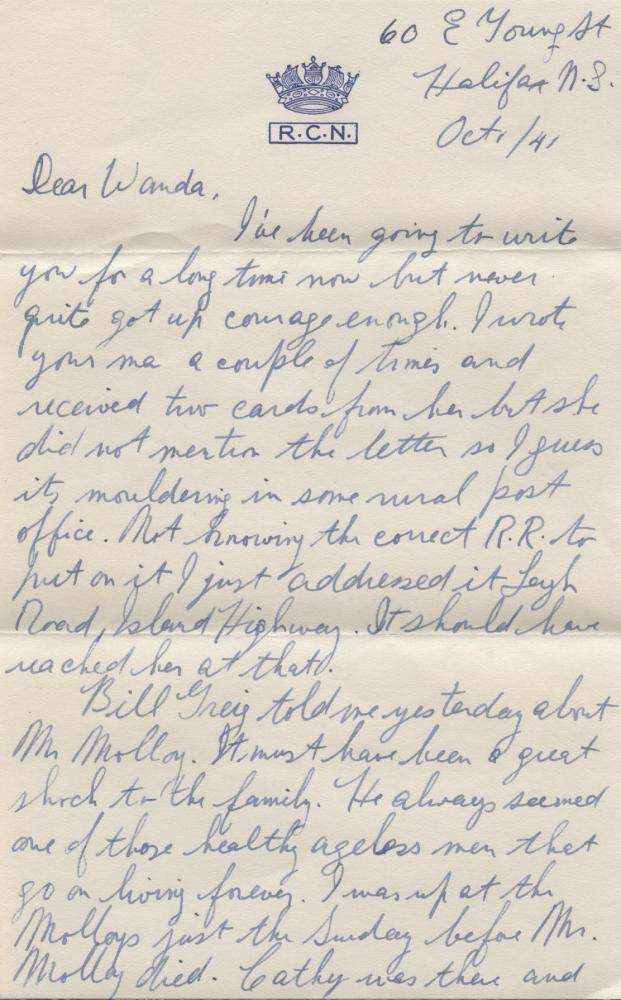 60 E Young St
Halifax N.S.
R.C.N.
Oct 1/41
Dear Wanda,
I've been going to write
you for a long time now but never
quite got up courage enough. I wrote
your ma a couple of times and
received two cards from her but she
did not mention the letter so I guess
it, mouldering in some rural post
office. Not knowing the correct R.R. to
put on it I just addressed it Leigh
Road, Island Highway. It should have
reached her at that.
Bill Greig told me yesterday about
Mr Molloy. It must have been a great
shock to the family. He always seemed
one of those healthy ageless men that
go on living forever. I was up at the
Molloys just the Sunday before Mr.
Molloy died. Cathy was there and